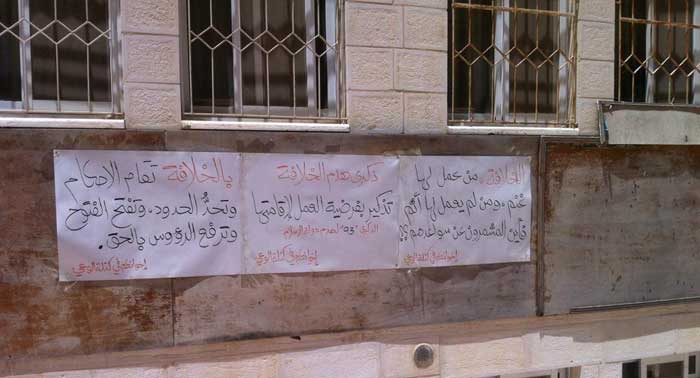 الخلافة، من عمل لها
غنم، ومن لم يعمل لها أثم
فأين المشمرون عن سواعدهم؟؟
إخوانكم في كتلة الوعي
ذكرى هدم الخلافة
تذكير بفرضية العمل لإقامتها
الذكرى "93" لهدم دولة الإسلام
بالخلافة تقام الأحكام
وتحدُّ الحدود، وتفتح الفتوح
وترفع الرؤوس بالحق.
إخوانكم في كتلة الوعي